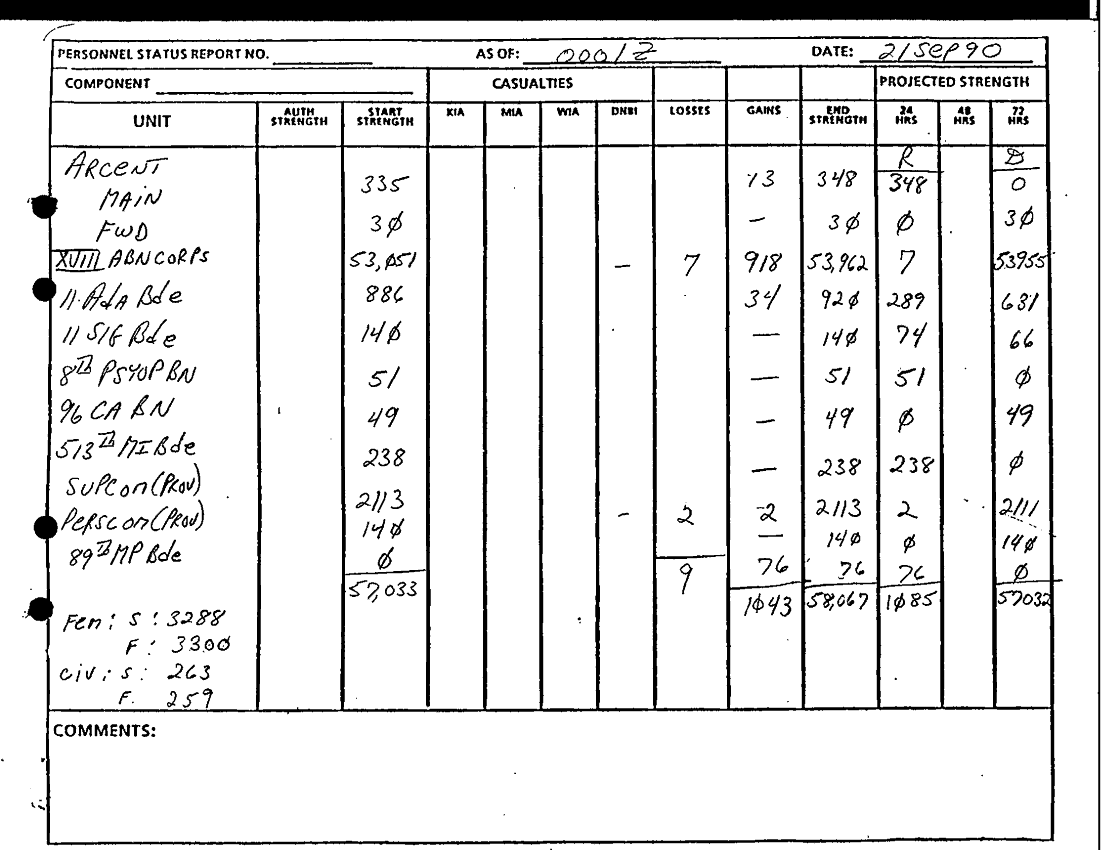 PERSONNEL STATUS REPORT NO. AS OF: 0001Z DATE: 21 Sep 90
COMPONENT CASUALTIES PROJECTED STRENGTH
UNIT AUTH STRENGTH START STRENGTH KIA MIA WIA DNBI LOSSES GAINS END STRENGTH 24 HRS 48 HRS 72 HRS
ARCENT R D
MAIN 335 13 348 348 0
FWD 3Ø - 3Ø Ø 3Ø
XVIII ABN CORPS 53,Ø51 - 7 918 53,962 7 53955
11 AdA Bde 886 34 92Ø 289 631
11 SIG Bde 14Ø - 14Ø 74 66
8TH PSYOP BN 51 - 51 51 Ø
96 CA BN 49 - 49 Ø 49
513TH MI Bde 238 - 238 238 Ø
SUPCOM (PROV) 2113 - 2 2 2113 2 2111
PERSCOM (PROV) 14Ø - 14Ø Ø 14Ø
89TH MP Bde Ø 76 76 76 Ø
57,033 9 1Ø43 58,067 1Ø85 57032
Fem: S: 3288
F: 3300
civ: S: 263
F. 259
COMMENTS: